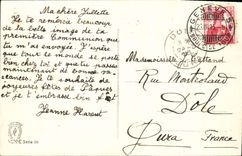 Ma chère Juliette
Je te remercie beaucoup
de la belle image de ta
première Communion que
tu m'as envoyée. J'espère
que tout le monde se porte
bien chez toi et que tu passes
maintenant de bonnes
vacances. Je te souhaite de
joyeuses fêtes de Pâques
et je t'embrasse bien fort
Jeanne
Mademoiselle J.
Rue
Dole
Jura
France
GENÈVE
Serie